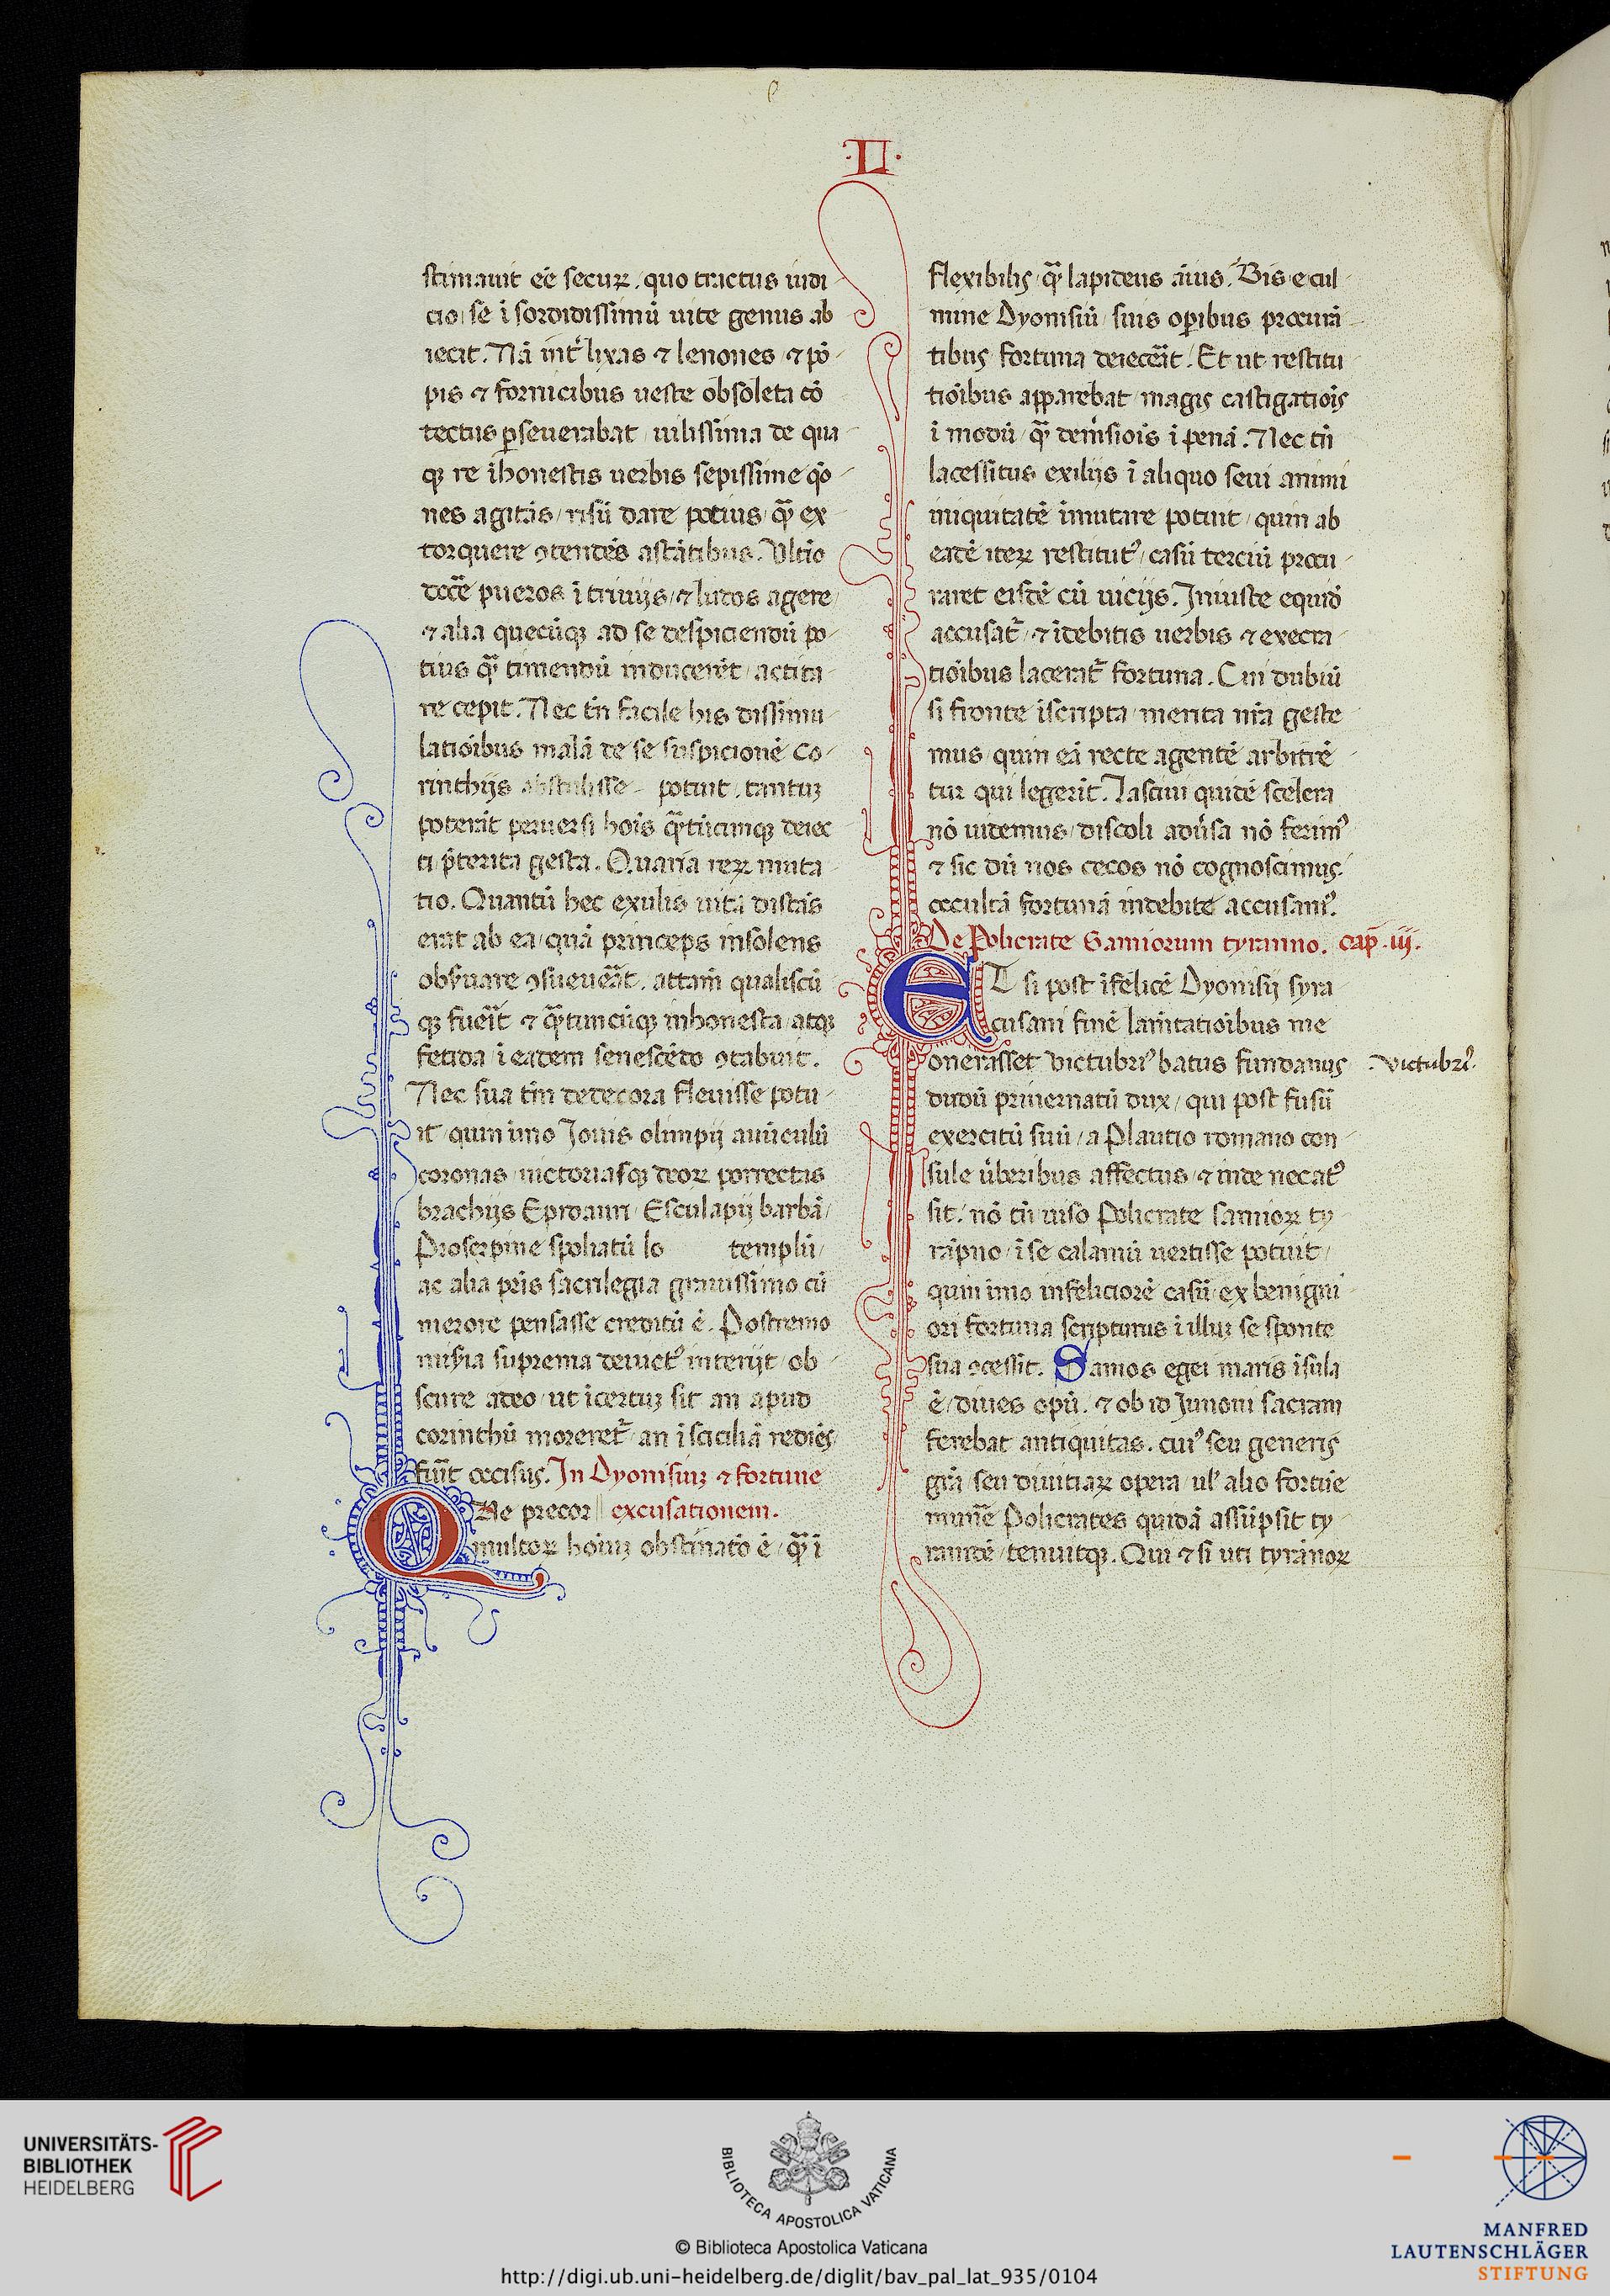 ·II·
stimauit eē̄ secuꝝ. quo tractus uidi
cio se ī sordidissimū uite genus ab
iecit. Nā int̄ lixas ⁊ lenones ⁊ pō
pis ⁊ fornicibus ueste obsoleta cō
tectus ꝑseuerabat uilissima de qua
qꝫ re īhonestis uerbis sepissime q̄o
nes agitās risū dare potius q̄ꝫ ex
torquere ꝯtendēs astātibus. Ultīo
docē̄ pueros ī triuijs ⁊ ludos agere
⁊ alia quecūqꝫ ad se despiciendū po
tius q̄ꝫ timendū inducerēt actita
re cepit. Nec tn̄ facile his dissimu
latiōibus malā de se suspicionē co
rinthijs abstulisse potuit tantuꝫ
poterāt peruersi hoīs q̄ꝫtūcunqꝫ deiec
ti p̄terita gesta. Quā uaria reꝝ muta
tio. Quantū hec exulis uita distās
erat ab ea quā princeps insolens
obs̄uare ꝯsueuerāt. attam̄ qualiscū
qꝫ fuerit ⁊ q̄ꝫtuncūqꝫ inhonesta atqꝫ
fetida ī eadem senescēdo ꝯtabuit.
Nec sua tm̄ dedecora fleuisse potu
it quin imo Jouis olimpij auūculū
coronas uictoriasqꝫ deoꝝ porrectas
brachijs Epidauri Esculapij barbā
Proserpine spoliatū lo templū
ac alia pris sacrilegia grauissimo cū
merore pensasse creditū ē. Postremo
mis̄ia suprema deuict⁹ interijt ob
scure adeo ut īcertuꝫ sit an apud
corinthū moreret᷑ an ī siciliā rediēs
fuīt occisus. In Dyonisiuꝫ ⁊ fortune
QUe precor excusationem.
multoꝝ hoīuꝫ obstinatō ē q̄ꝫ ī
flexibilis q̄ꝫ lapideus aīus. Bis e cul
mine Dyonisiū suis oꝑibus procurā
tibus fortuna deiecerāt. Et ut restitu
tiōibus apparebat magis castigatiōis
ī modū q̄ꝫ demīsiois ī penā. Nec tn̄
lacessitus exilijs ī aliquo seui animi
iniquitatē īmutare potuit quin ab
eadē iteꝝ restitut⁹ casū terciū procu
raret eisdē cū uicijs. Iniuste equidē
accusat᷑ ⁊ īdebitis uerbis ⁊ execra
tiōibus lacerat᷑ fortuna. Cui dubiū
si fronte īscripta merita nr̄a geste
mus quin eā recte agentē arbitrē
tur qui legerīt. Lasciui quidē scelera
nō uidemus discoli adūsa nō ferim⁹
⁊ sic dū nos cecos nō cognoscimus
occultā fortunā indebite accusam⁹.
De Policrate Samiorum tyranno. cap̄. iij.
ET si post īfelicē Dyonisij syra
cusani finē lam̄tatiōibus me
onerasset Victubri⁹ batus fundanus
Victubri⁹.
dudū priuernatū dux qui post fusū
exercitū suū a Plautio romano con
sule ūberibus affectus ⁊ inde necat⁹
sit. nō tn̄ uiso Policrate samioꝝ ty
rāpno ī se calamū uertisse potuit
quin imo infeliciorē casū ex benigni
ori fortuna scripturus ī illuꝫ se sponte
sua ꝯcessit. Samos egei maris īsula
ē diues opū. ⁊ ob id Junoni sacram
ferebat antiquitas. cui⁹ seu generis
gr̄a seu diuitiaꝝ opera ul̓ alio fortūe
munē̄ Policrates quidā assūpsit ty
rannidē tenuitqꝫ. Qui ⁊ si uti tyrānoꝝ
UNIVERSITÄTS-
BIBLIOTHEK
HEIDELBERG
BIBLIOTECA APOSTOLICA VATICANA
© Biblioteca Apostolica Vaticana
http://digi.ub.uni-heidelberg.de/diglit/bav_pal_lat_935/0104
MANFRED
LAUTENSCHLÄGER
STIFTUNG